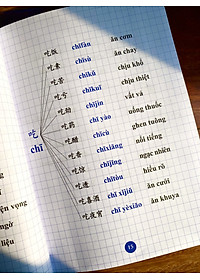 吃饭 chīfàn ăn cơm
吃素 chīsù ăn chay
吃苦 chīkǔ chịu khổ
吃亏 chīkuī chịu thiệt
吃劲 chījìn vất vả
吃药 chī yào uống thuốc
吃醋 chīcù ghen tuông
吃香 chīxiāng nổi tiếng
吃 chī
吃惊 chījīng ngạc nhiên
吃透 chītòu hiểu rõ
吃喜酒 chī xǐjiǔ ăn cưới
吃夜宵 chī yèxiāo ăn khuya
vọng
ngờ
liệu
15